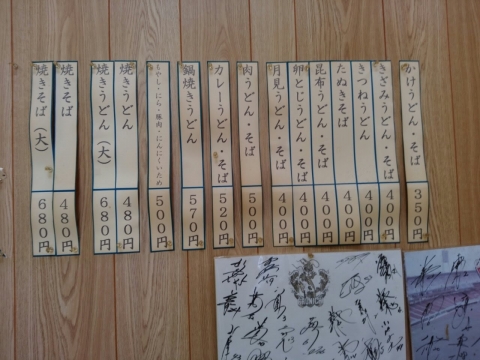 かけうどん・そば 350円
きざみうどん・そば 400円
きつねうどん 400円
たぬきそば 400円
昆布うどん・そば 400円
卵とじうどん・そば 400円
月見うどん・そば 400円
肉うどん・そば 550円
カレーうどん・そば 520円
鍋焼きうどん 570円
もやし・にら・豚肉・にんにくいため 500円
焼きうどん 480円
焼きうどん（大） 680円
焼きそば 480円
焼きそば（大） 680円